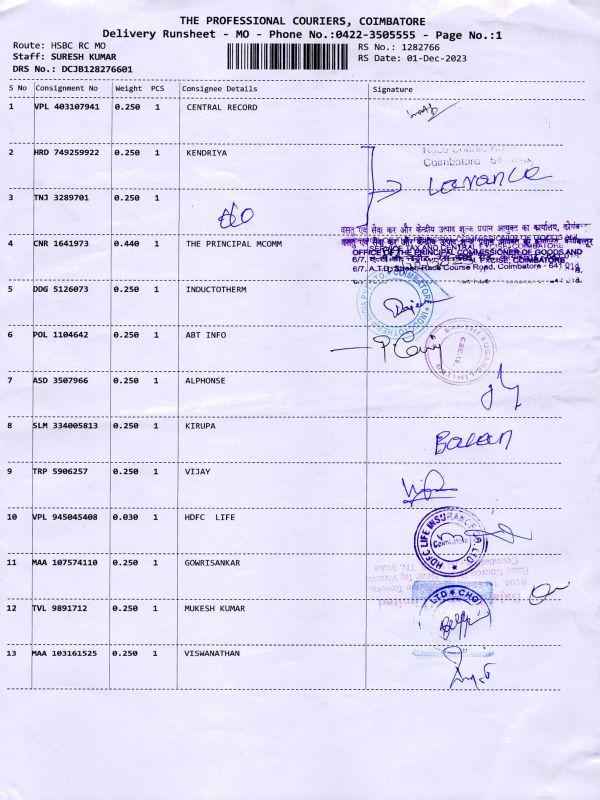 THE PROFESSIONAL COURIERS, COIMBATORE
Delivery Runsheet - MO - Phone No.:0422-3505555 - Page No.:1
Route: HSBC RC MO
RS No.: 1282766
Staff: SURESH KUMAR
RS Date: 01-Dec-2023
DRS No.: DCJB128276601
S No Consignment No Weight PCS Consignee Details Signature
1 VPL 403107941 0.250 1 CENTRAL RECORD
2 HRD 749259922 0.250 1 KENDRIYA
Coimbatore
Lavanca
3 TNJ 3289701 0.250 1
4 CNR 1641973 0.440 1 THE PRINCIPAL MCOMM
OFFICE OF THE PRINCIPAL COMMISSIONER OF GOODS AND
6/7, A.T.D. Street, Race Course Road, Coimbatore - 641 018.
5 DDG 5126073 0.250 1 INDUCTOTHERM
6 POL 1104642 0.250 1 ABT INFO
7 ASD 3507966 0.250 1 ALPHONSE
8 SLM 334005813 0.250 1 KIRUPA
Balan
9 TRP 5906257 0.250 1 VIJAY
10 VPL 945045408 0.030 1 HDFC LIFE
HDFC LIFE INSURANCE CO. LTD.
Coimbatore
11 MAA 107574110 0.250 1 GOWRISANKAR
12 TVL 9891712 0.250 1 MUKESH KUMAR
LTD ★ CHO
13 MAA 103161525 0.250 1 VISWANATHAN